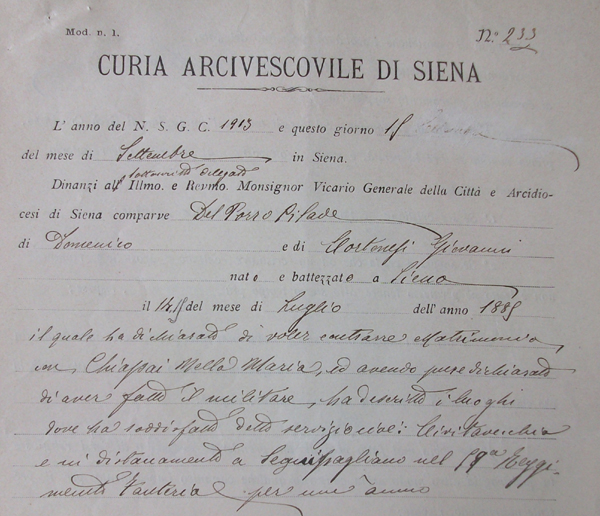 Mod. n. 1.
N.º 233
CURIA ARCIVESCOVILE DI SIENA
L' anno del N. S. G. C. 1913 e questo giorno 15
del mese di Settembre in Siena.
sottoscritto delegato
Dinanzi all' Illmo. e Revmo. Monsignor Vicario Generale della Città e Arcidio-
cesi di Siena comparve Del Porro Pilade
di Domenico e di Cortonesi Giovanni
nato e battezzato a Siena
il del mese di Luglio dell' anno 1885
il quale ha dichiarato di voler contrarre Matrimonio
con Chiapai Mella Maria, ed avendo pure dichiarato
di aver fatto il militare, ha descritto i luoghi
dove ha soddisfatto detto servizio cioè: Civitavecchia
e in distaccamento a nel Reggi-
mento Fanteria per un anno